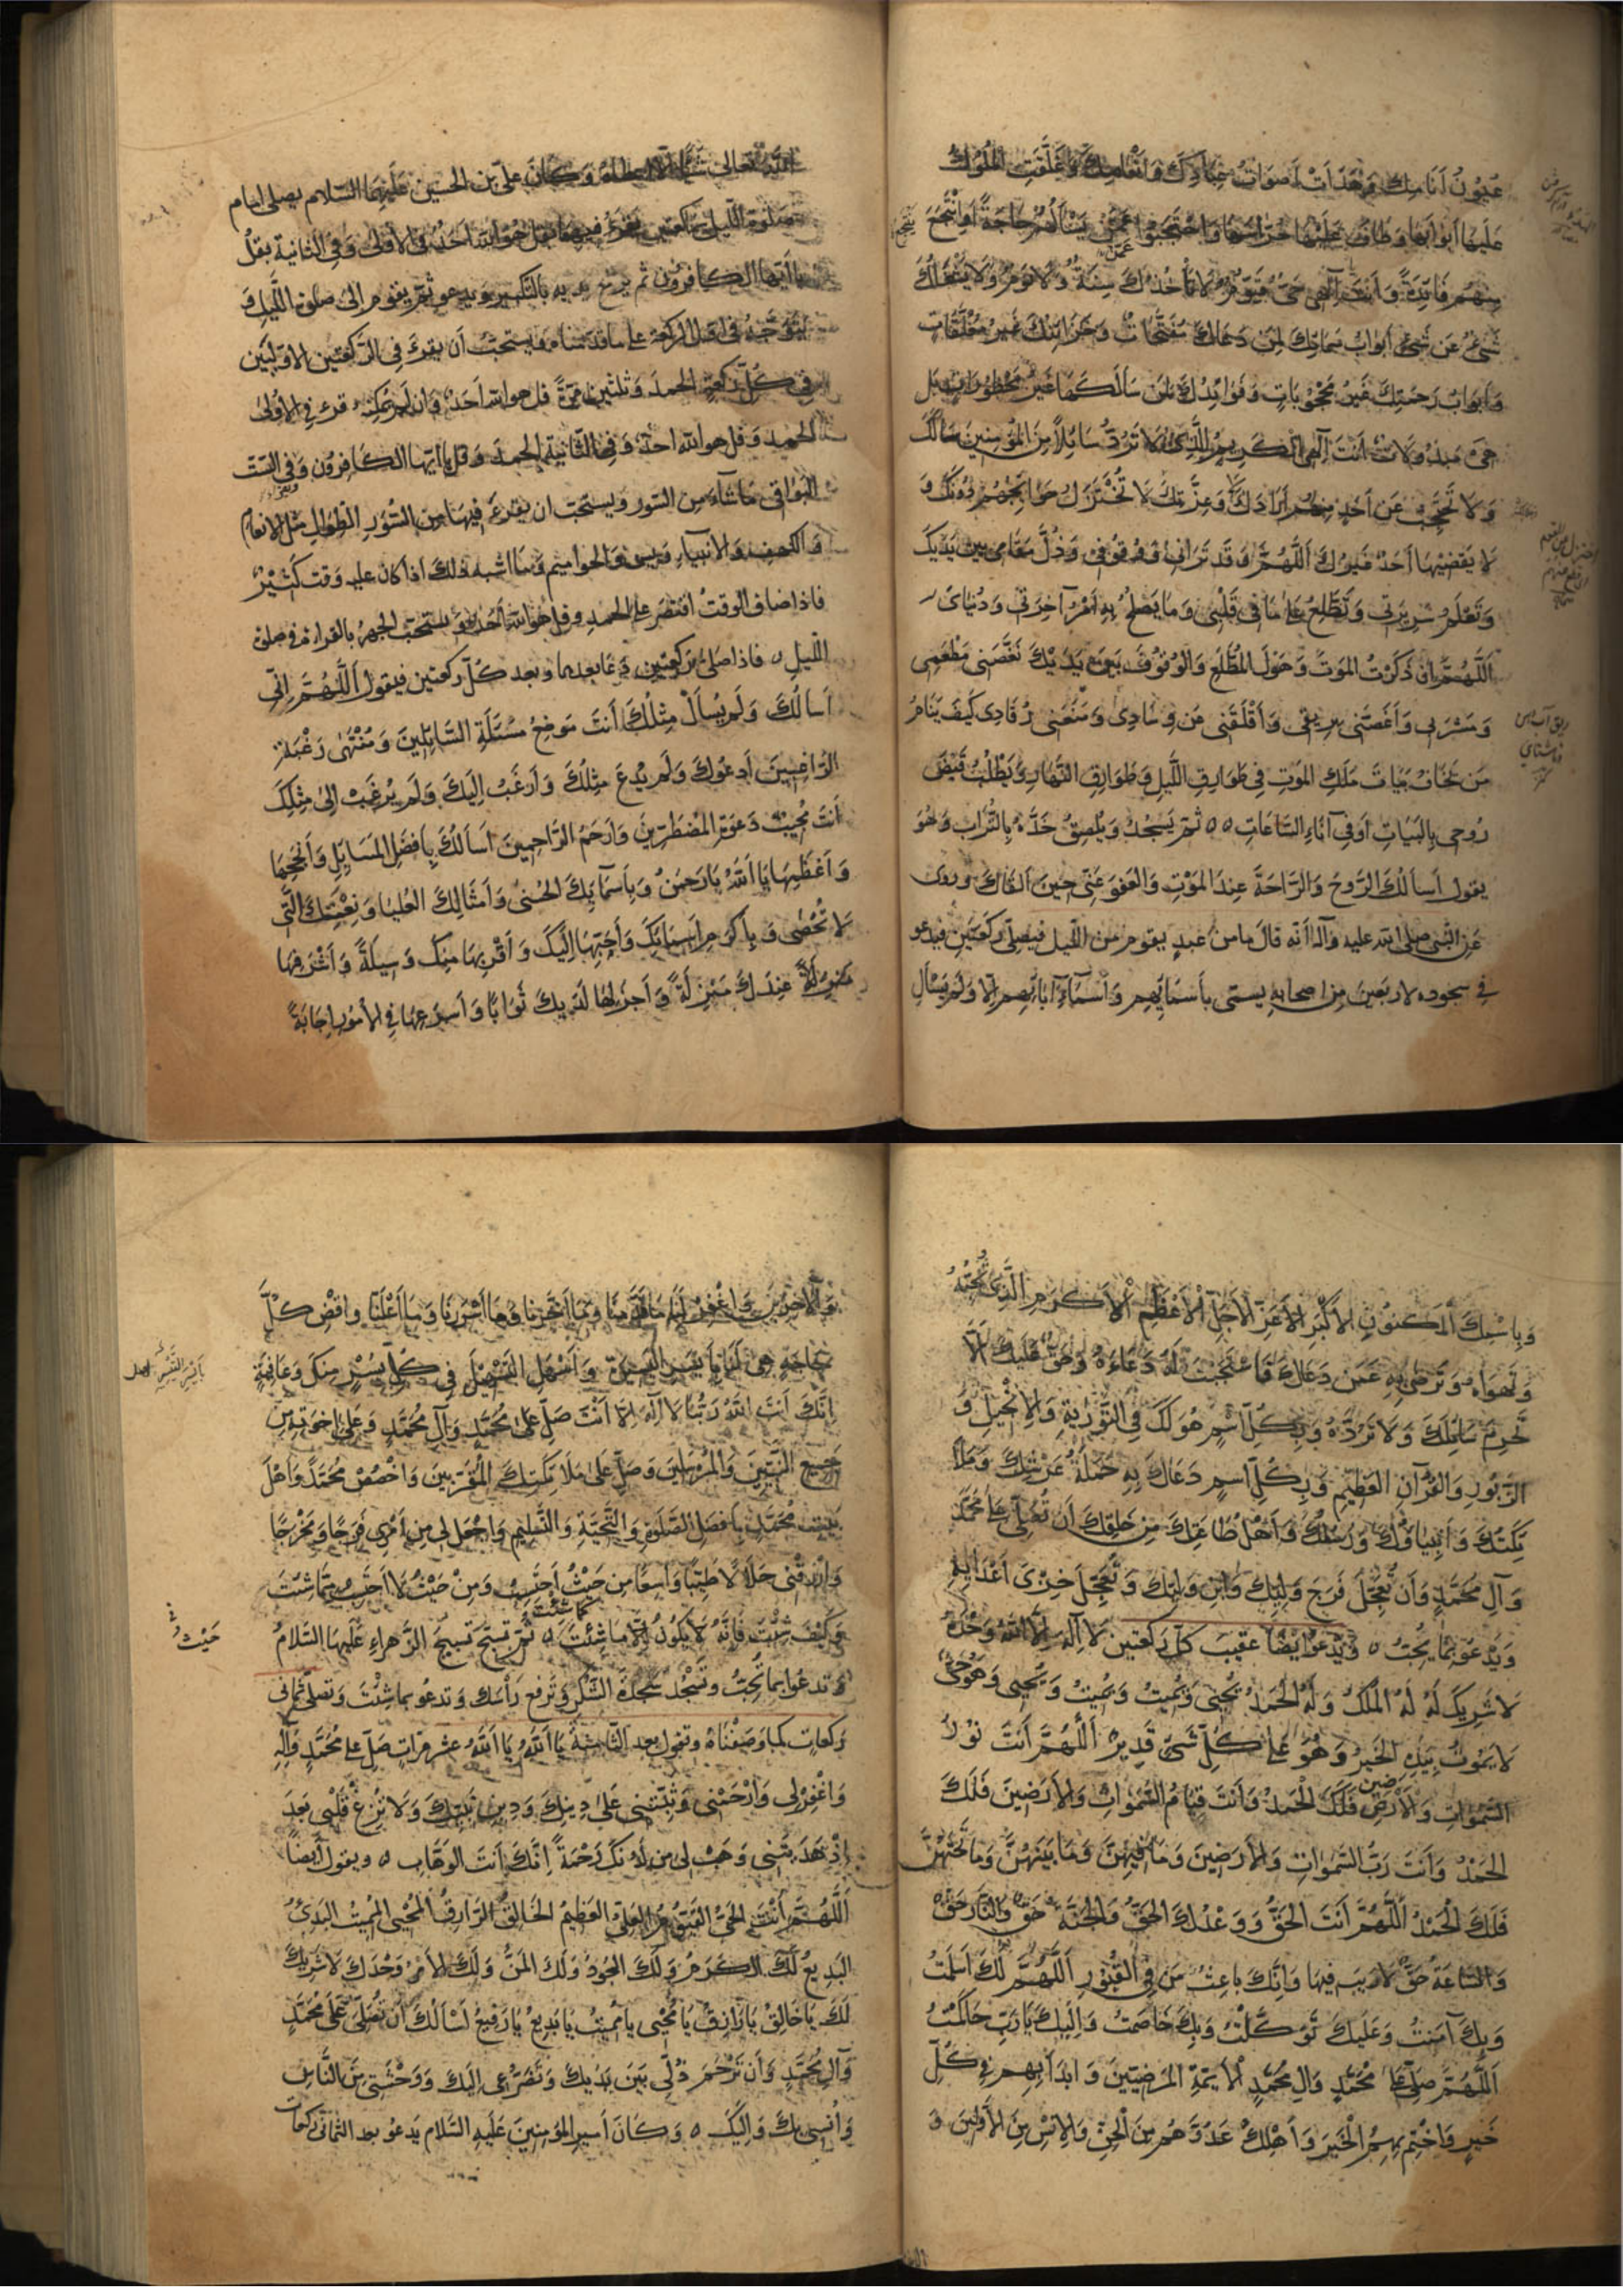 عُيُونُ أَنَامِكَ وَهَدَأَتْ أَصْوَاتُ عِبَادِكَ وَأَنْعَامِكَ وَغَلَّقَتِ الْمُلُوكُ
عَلَيْهَا أَبْوَابَهَا وَطَافَ عَلَيْهَا حُرَّاسُهَا وَاحْتَجَبُوا عَمَّنْ يَسْأَلُهُمْ حَاجَةً أَوْ يَنْتَجِعُ
مِنْهُمْ فَائِدَةً وَأَنْتَ إِلَهِي حَيٌّ قَيُّومٌ لَا تَأْخُذُكَ سِنَةٌ وَلَا نَوْمٌ وَلَا يَشْغَلُكَ
شَيْءٌ عَنْ شَيْءٍ أَبْوَابُ سَمَائِكَ لِمَنْ دَعَاكَ مُفَتَّحَاتٌ وَخَزَائِنُكَ غَيْرُ مُغَلَّقَاتٍ
وَأَبْوَابُ رَحْمَتِكَ غَيْرُ مَحْجُوبَاتٍ وَفَوَائِدُكَ لِمَنْ سَأَلَكَهَا غَيْرُ مَحْظُورَاتٍ بَلْ
هِيَ مَبْذُولَاتٌ أَنْتَ إِلَهِي الْكَرِيمُ الَّذِي لَا تَرُدُّ سَائِلًا مِنَ الْمُؤْمِنِينَ سَأَلَكَ
وَلَا تَحْتَجِبُ عَنْ أَحَدٍ مِنْهُمْ أَرَادَكَ لَا وَعِزَّتِكَ لَا تُخْتَزَلُ حَوَائِجُهُمْ دُونَكَ وَ
لَا يَقْضِيهَا أَحَدٌ غَيْرُكَ اللَّهُمَّ وَقَدْ تَرَانِي وَوُقُوفِي وَذُلَّ مَقَامِي بَيْنَ يَدَيْكَ
وَتَعْلَمُ سَرِيرَتِي وَتَطَّلِعُ عَلَى مَا فِي قَلْبِي وَمَا يَصْلُحُ بِهِ أَمْرُ آخِرَتِي وَدُنْيَايَ
اللَّهُمَّ إِنْ ذَكَرْتُ الْمَوْتَ وَهَوْلَ الْمُطَّلَعِ وَالْوُقُوفَ بَيْنَ يَدَيْكَ نَغَّصَنِي مَطْعَمِي
وَمَشْرَبِي وَأَغَصَّنِي بِرِيقِي وَأَقْلَقَنِي عَنْ وِسَادِي وَمَنَعَنِي رُقَادِي كَيْفَ يَنَامُ
مَنْ يَخَافُ بَيَاتَ مَلَكِ الْمَوْتِ فِي طَوَارِقِ اللَّيْلِ وَطَوَارِقِ النَّهَارِ وَيَطْلُبُ قَبْضَ
رُوحِي بِالْبَيَاتِ أَوْ فِي آنَاءِ السَّاعَاتِ ٥٥ ثُمَّ يَسْجُدُ وَيُلْصِقُ خَدَّهُ بِالتُّرَابِ وَهُوَ
يقول أَسْأَلُكَ الرَّوْحَ وَالرَّاحَةَ عِنْدَ الْمَوْتِ وَالْعَفْوَ عَنِّي حِينَ أَلْقَاكَ وروى
عن النبي صلى الله عليه وآله أنه قال ما من عبد يقوم من الليل فيصلي ركعتين فيدعو
في سجوده لاربعين من اصحابه يسمى بأسمائهم وأسماء آبائهم إلا ولم يسأل
الله تعالى شيئا إلا اعطاه وكان علي بن الحسين عليهما السلام يصلي امام
صلوة الليل ركعتين يقرء فيهما بقل هو الله احد في الأولى وفي الثانية بقل
يا أيها الكافرون ثم يرفع يديه بالتكبير ويدعو ثم يقوم إلى صلوة الليل و
يتوجه في اول الركعة على ما قدمناه ويستحب أن يقرء في الركعتين الاوليين
في كل ركعة الحمد وثلثين مرة قل هو الله احد وان لم يمكنه قرء في الأولى
الحمد وقل هو الله احد وفي الثانية الحمد وقل يا أيها الكافرون وفي الست
البواقي ما شاء من السور ويستحب ان يقرء فيها من السور الطوال مثل الانعام
والكهف والانبياء ويس والحواميم وما اشبه ذلك اذا كان عليه وقت كثير
فاذا ضاق الوقت اقتصر على الحمد وقل هو الله أحد ويستحب الجهر بالقراءة في صلوة
الليل ٥ فاذا صلى ركعتين دعا بعدهما وبعد كل ركعتين فيقول اللَّهُمَّ إِنِّي
أَسْأَلُكَ وَلَمْ يُسْأَلْ مِثْلُكَ أَنْتَ مَوْضِعُ مَسْئَلَةِ السَّائِلِينَ وَمُنْتَهَى رَغْبَةِ
الرَّاغِبِينَ أَدْعُوكَ وَلَمْ يُدْعَ مِثْلُكَ وَأَرْغَبُ إِلَيْكَ وَلَمْ يُرْغَبْ إِلَى مِثْلِكَ
أَنْتَ مُجِيبُ دَعْوَةِ الْمُضْطَرِّينَ وَأَرْحَمُ الرَّاحِمِينَ أَسْأَلُكَ بِأَفْضَلِ الْمَسَائِلِ وَأَنْجَحِهَا
وَأَعْظَمِهَا يَا اللهُ يَا رَحْمَنُ وَبِأَسْمَائِكَ الْحُسْنَى وَأَمْثَالِكَ الْعُلْيَا وَنِعْمَتِكَ الَّتِي
لَا تُحْصَى وَبِأَكْرَمِ أَسْمَائِكَ وَأَحَبِّهَا إِلَيْكَ وَأَقْرَبِهَا مِنْكَ وَسِيلَةً وَأَشْرَفِهَا
عِنْدَكَ مَنْزِلَةً وَأَجْزَلِهَا لَدَيْكَ ثَوَابًا وَأَسْرَعِهَا فِي الْأُمُورِ إِجَابَةً
وَبِاسْمِكَ الْمَكْنُونِ الْأَكْبَرِ الْأَعَزِّ الْأَجَلِّ الْأَعْظَمِ الْأَكْرَمِ الَّذِي تُحِبُّهُ
وَتَهْوَاهُ وَتَرْضَى بِهِ عَمَّنْ دَعَاكَ فَاسْتَجَبْتَ لَهُ دُعَاءَهُ وَحَقٌّ عَلَيْكَ أَلَّا
تَحْرِمَ سَائِلَكَ وَلَا تَرُدَّهُ وَبِكُلِّ اسْمٍ هُوَ لَكَ فِي التَّوْرَيةِ وَالْإِنْجِيلِ وَ
الزَّبُورِ وَالْقُرْآنِ الْعَظِيمِ وَبِكُلِّ اسْمٍ دَعَاكَ بِهِ حَمَلَةُ عَرْشِكَ وَمَلَا
ئِكَتُكَ وَأَنْبِيَاؤُكَ وَرُسُلُكَ وَأَهْلُ طَاعَتِكَ مِنْ خَلْقِكَ أَنْ تُصَلِّيَ عَلَى مُحَمَّدٍ
وَآلِ مُحَمَّدٍ وَأَنْ تُعَجِّلَ فَرَجَ وَلِيِّكَ وَابْنِ وَلِيِّكَ وَتُعَجِّلَ خِزْيَ أَعْدَائِهِ
وَيَدْعُو بِمَا يُحِبُّ ٥ وَيَدْعُو أَيْضًا عَقِيبَ كُلِّ رَكْعَتَيْنِ لَا إِلَهَ إِلَّا اللهُ وَحْدَهُ
لَا شَرِيكَ لَهُ لَهُ الْمُلْكُ وَلَهُ الْحَمْدُ يُحْيِي وَيُمِيتُ وَيُمِيتُ وَيُحْيِي وَهُوَ حَيٌّ
لَا يَمُوتُ بِيَدِهِ الْخَيْرُ وَهُوَ عَلَى كُلِّ شَيْءٍ قَدِيرٌ اللَّهُمَّ أَنْتَ نُورُ
السَّمَوَاتِ وَالْأَرْضِ فَلَكَ الْحَمْدُ وَأَنْتَ قِيَامُ السَّمَوَاتِ وَالْأَرَضِينَ فَلَكَ
الْحَمْدُ وَأَنْتَ رَبُّ السَّمَوَاتِ وَالْأَرَضِينَ وَمَا فِيهِنَّ وَمَا بَيْنَهُنَّ وَمَا تَحْتَهُنَّ
فَلَكَ الْحَمْدُ اللَّهُمَّ أَنْتَ الْحَقُّ وَوَعْدُكَ الْحَقُّ وَالْجَنَّةُ حَقٌّ وَالنَّارُ حَقٌّ
وَالسَّاعَةُ حَقٌّ لَا رَيْبَ فِيهَا وَإِنَّكَ بَاعِثُ مَنْ فِي الْقُبُورِ اللَّهُمَّ لَكَ أَسْلَمْتُ
وَبِكَ آمَنْتُ وَعَلَيْكَ تَوَكَّلْتُ وَبِكَ خَاصَمْتُ وَإِلَيْكَ يَا رَبِّ حَاكَمْتُ
اللَّهُمَّ صَلِّ عَلَى مُحَمَّدٍ وَآلِ مُحَمَّدٍ الْأَئِمَّةِ الْمَرْضِيِّينَ وَابْدَأْ بِهِمْ فِي كُلِّ
خَيْرٍ وَاخْتِمْ بِهِمُ الْخَيْرَ وَأَهْلِكْ عَدُوَّهُمْ مِنَ الْجِنِّ وَالْإِنْسِ مِنَ الْأَوَّلِينَ وَ
الْآخِرِينَ وَاغْفِرْ لَنَا مَا قَدَّمْنَا وَمَا أَخَّرْنَا وَمَا أَسْرَرْنَا وَمَا أَعْلَنَّا وَاقْضِ كُلَّ
حَاجَةٍ هِيَ لَنَا بِأَيْسَرِ التَّيْسِيرِ وَأَسْهَلِ التَّسْهِيلِ فِي كُلِّ يُسْرٍ مِنْكَ وَعَافِيَةٍ
إِنَّكَ أَنْتَ اللهُ رَبُّنَا لَا إِلَهَ إِلَّا أَنْتَ صَلِّ عَلَى مُحَمَّدٍ وَآلِ مُحَمَّدٍ وَعَلَى إِخْوَتِهِ مِنْ
جَمِيعِ النَّبِيِّينَ وَالْمُرْسَلِينَ وَصَلِّ عَلَى مَلَائِكَتِكَ الْمُقَرَّبِينَ وَاخْصُصْ مُحَمَّدًا وَأَهْلَ
بَيْتِ مُحَمَّدٍ بِأَفْضَلِ الصَّلَوةِ وَالتَّحِيَّةِ وَالتَّسْلِيمِ وَاجْعَلْ لِي مِنْ أَمْرِي فَرَجًا وَمَخْرَجًا
وَارْزُقْنِي حَلَالًا طَيِّبًا وَاسِعًا مِنْ حَيْثُ أَحْتَسِبُ وَمِنْ حَيْثُ لَا أَحْتَسِبُ مِمَّا شِئْتَ
وَكَيْفَ شِئْتَ فَإِنَّهُ يَكُونُ مَا شِئْتَ كَمَا شِئْتَ ٥ ثُمَّ تُسَبِّحُ تَسْبِيحَ الزَّهْرَاءِ عَلَيْهَا السَّلَامُ
حَيْثُ
وَتَدْعُو بِمَا تُحِبُّ وَتَسْجُدُ سَجْدَةَ الشُّكْرِ وَتَرْفَعُ رَأْسَكَ وَتَدْعُو بِمَا شِئْتَ وَتُصَلِّي ثَمَانِيَ
رَكَعَاتٍ كَمَا وَصَفْنَاهُ وَتَقُولُ بَعْدَ الثَّامِنَةِ يَا اللهُ يَا اللهُ عَشْرَ مَرَّاتٍ صَلِّ عَلَى مُحَمَّدٍ وَآلِهِ
وَاغْفِرْ لِي وَارْحَمْنِي وَثَبِّتْنِي عَلَى دِينِكَ وَدِينِ نَبِيِّكَ وَلَا تُزِغْ قَلْبِي بَعْدَ
إِذْ هَدَيْتَنِي وَهَبْ لِي مِنْ لَدُنْكَ رَحْمَةً إِنَّكَ أَنْتَ الْوَهَّابُ ٥ ويقول أيضًا
اللَّهُمَّ أَنْتَ الْحَيُّ الْقَيُّومُ الْعَلِيُّ الْعَظِيمُ الْخَالِقُ الرَّازِقُ الْمُحْيِي الْمُمِيتُ الْبَدِئُ
الْبَدِيعُ لَكَ الْكَرَمُ وَلَكَ الْجُودُ وَلَكَ الْمَنُّ وَلَكَ الْأَمْرُ وَحْدَكَ لَا شَرِيكَ
لَكَ يَا خَالِقُ يَا رَازِقُ يَا مُحْيِي يَا مُمِيتُ يَا بَدِيعُ يَا رَفِيعُ أَسْأَلُكَ أَنْ تُصَلِّيَ عَلَى مُحَمَّدٍ
وَآلِ مُحَمَّدٍ وَأَنْ تَرْحَمَ ذُلِّي بَيْنَ يَدَيْكَ وَتَضَرُّعِي إِلَيْكَ وَوَحْشَتِي مِنَ النَّاسِ
وَأُنْسِي بِكَ وَإِلَيْكَ ٥ وَكَانَ أَمِيرُ الْمُؤْمِنِينَ عَلَيْهِ السَّلَامُ يَدْعُو بَعْدَ الثَّمَانِي رَكَعَاتٍ